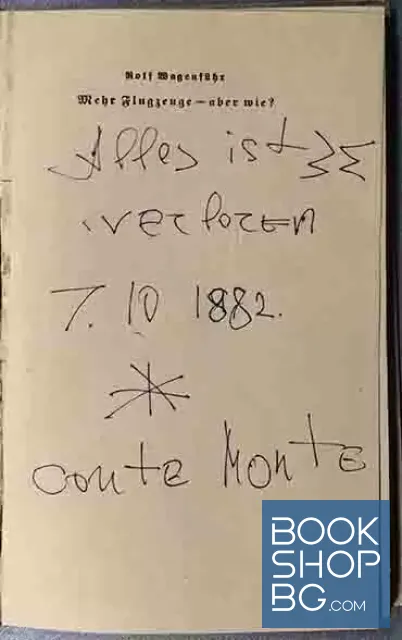 Rolf Wagenführ
Mehr Flugzeuge — aber wie?
Alles ist
verloren
7. 10 1882.
conte Monte
BOOK
SHOP
BG.COM